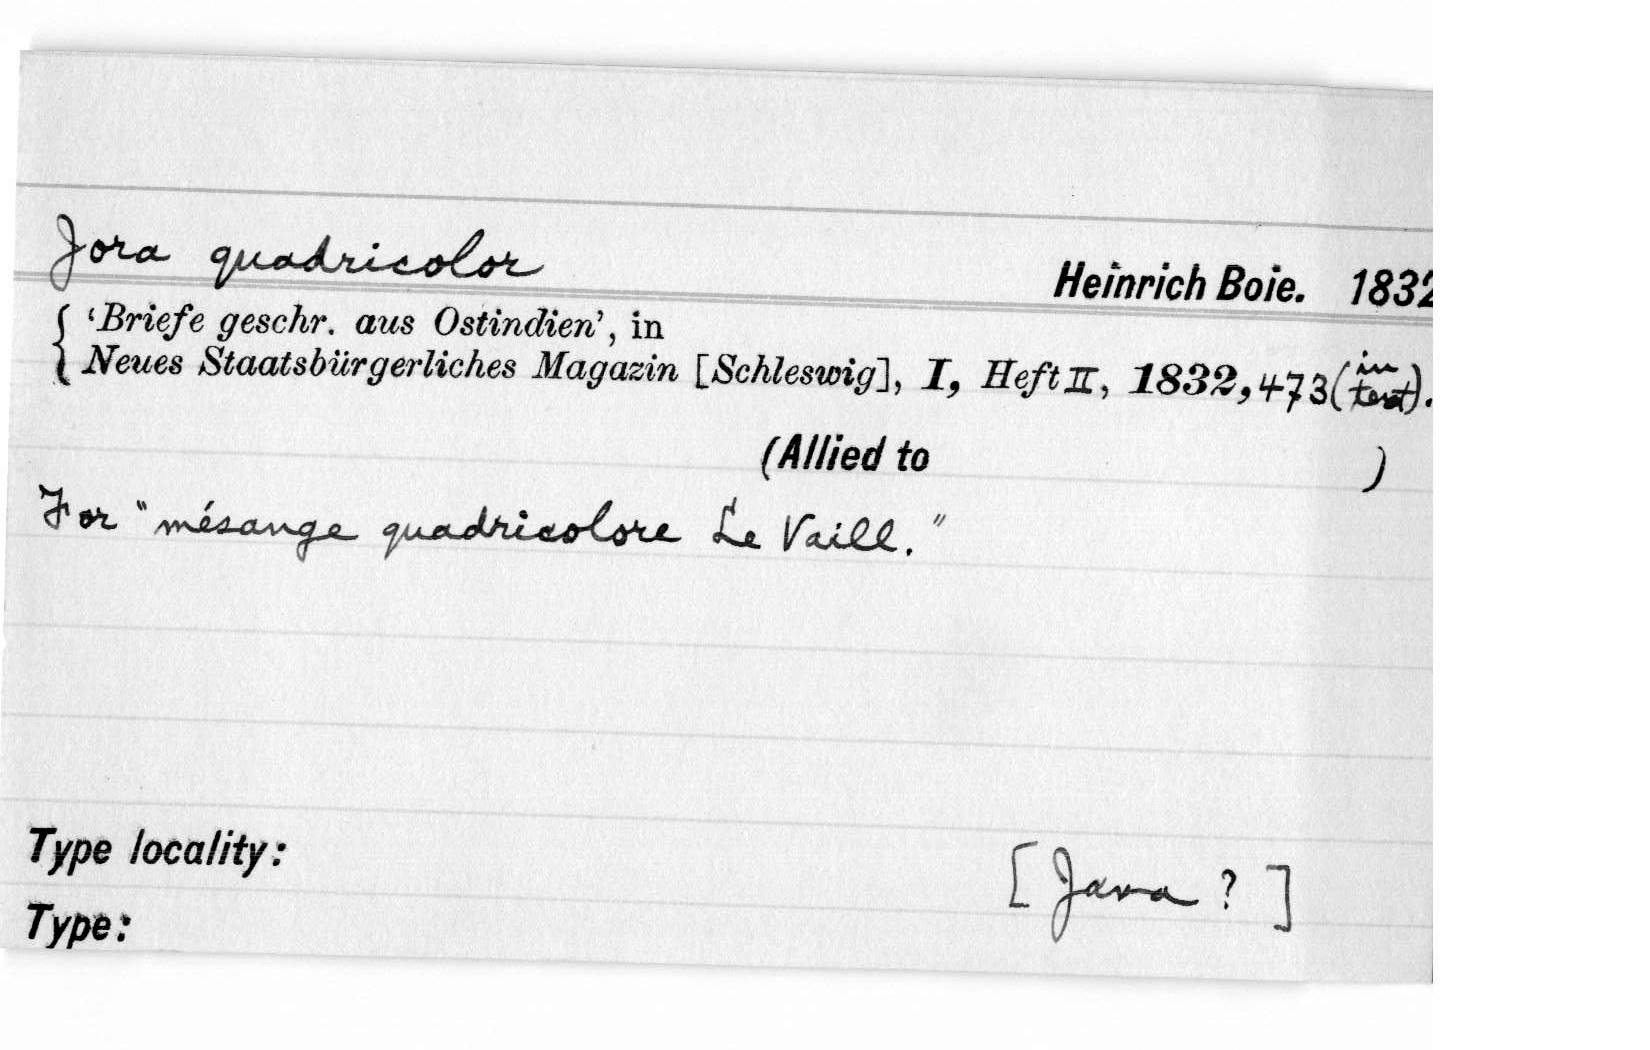 Jora quadricolor
Heinrich Boie. 1832
{ 'Briefe geschr. aus Ostindien', in
Neues Staatsbürgerliches Magazin [Schleswig], I, Heft II, 1832, 473 (in text).
(Allied to )
For "mésange quadricolore Le Vaill."
Type locality: [Java ?]
Type: